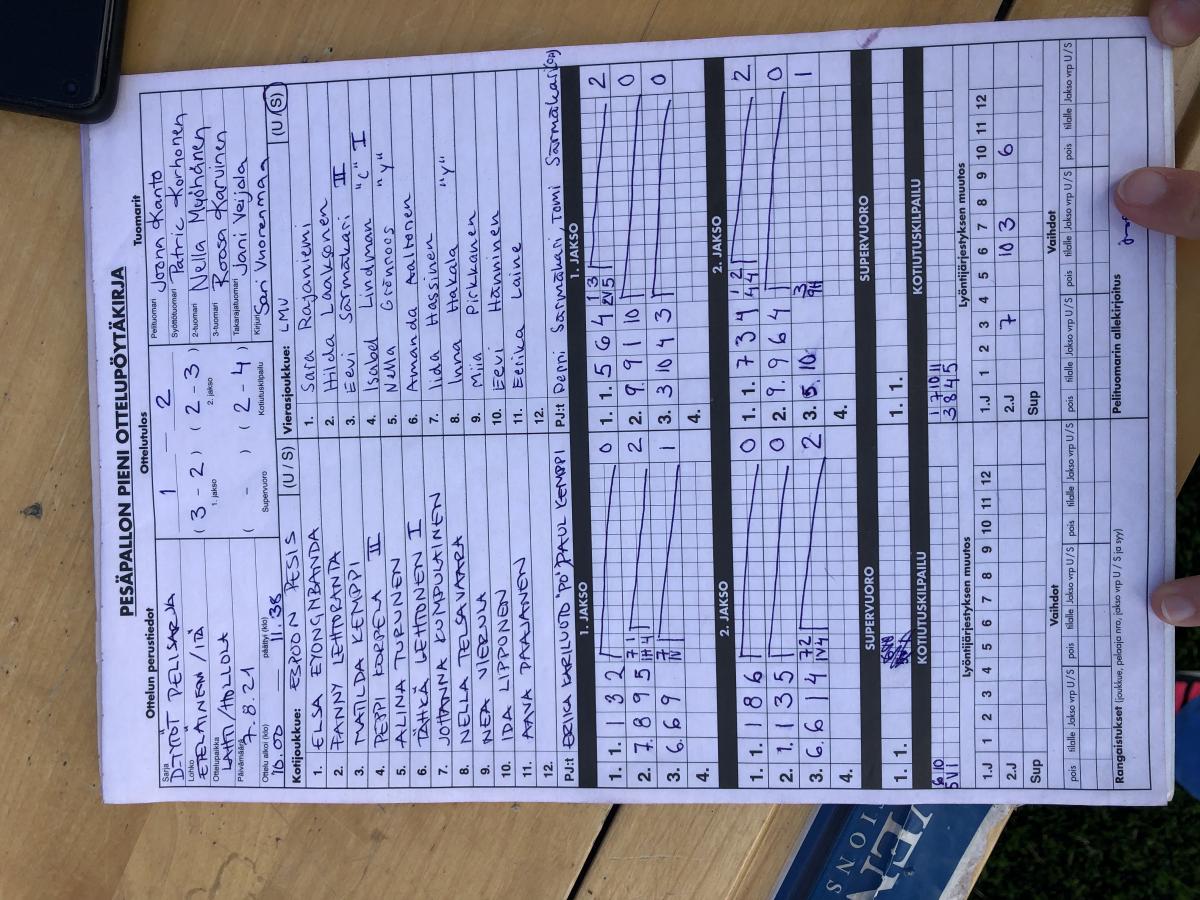 PESÄPALLON PIENI OTTELUPÖYTÄKIRJA
Ottelun perustiedot
Ottelutulos
Tuomarit
Sarja
D-TYTÖT PELISARJA
Lohko
ETELÄINEN / ITÄ
Ottelupaikka
LAHTI/HOLLOLA
Päivämäärä
7.8.21
Ottelu alkoi (klo) 10.00
päättyi (klo) 11.38
1 — 2
( 3 - 2 ) ( 2 - 3 )
1. jakso 2. jakso
( - ) ( 2 - 4 )
Supervuoro Kotiutuskilpailu
Pelituomari Jona Kanto
Syöttötuomari Patric Korhonen
2-tuomari Nella Myöhänen
3-tuomari Roosa Karvinen
Takarajatuomari Jani Veijola
Kirjuri Sari Vuorenmaa
Kotijoukkue: ESPOON PESIS (U / S)
1. ELSA EYONGNBANDA
2. FANNY LEHTORANTA
3. MATILDA KEMPPI
4. PEPPI KORPELA II
5. ALINA TURUNEN
6. TÄHKÄ LEHTONEN I
7. JOHANNA KUMPULAINEN
8. NELLA TELSAVAARA
9. NEA VIERULA
10. IDA LIPPONEN
11. AAVA PAAJANEN
12.
PJ:t ERIKA KARILUOTO "PO" PAUL KEMPPI
Vierasjoukkue: LMV (U/S)
1. Sara Rajaniemi
2. Hilda Laaksonen
3. Eevi Särmäkari II
4. Isabel Lindman "c" I
5. Nella Grönroos "y"
6. Amanda Aaltonen
7. Iida Hassinen
8. Inna Hakala "y"
9. Miia Pirkkanen
10. Eevi Hänninen
11. Eerika Laine
12.
PJ:t Särmäkari, Tomi Särmäkari
1. JAKSO
1. 1. 1 3 2 0
2. 7. 8 9 5 2
3. 6. 6 9 1
4.
1. JAKSO
1. 1. 5 6 4 2
2. 9. 9 1 10 0
3. 3 10 4 3 0
4.
2. JAKSO
1. 1. 1 8 6 0
2. 1. 1 3 5 0
3. 6. 6 1 4 2
4.
2. JAKSO
1. 1. 7 3 4 2
2. 9. 9 6 4 0
3. 5. 10 1
4.
SUPERVUORO
1. 1.
SUPERVUORO
1. 1.
KOTIUTUSKILPAILU
6 10
5 VI
KOTIUTUSKILPAILU
1 7 10 11
3 8 4 5
Lyöntijärjestyksen muutos
1 2 3 4 5 6 7 8 9 10 11 12
1.J
2.J
Sup
Lyöntijärjestyksen muutos
1 2 3 4 5 6 7 8 9 10 11 12
1.J
2.J 7 10 3 6
Sup
Vaihdot
pois tilalle Jakso vrp U / S pois tilalle Jakso vrp U / S pois tilalle Jakso vrp U / S
Vaihdot
pois tilalle Jakso vrp U / S pois tilalle Jakso vrp U / S pois tilalle Jakso vrp U / S
Rangaistukset (joukkue, pelaaja nro, jakso vrp U / S ja syy)
Pelituomarin allekirjoitus
IONS